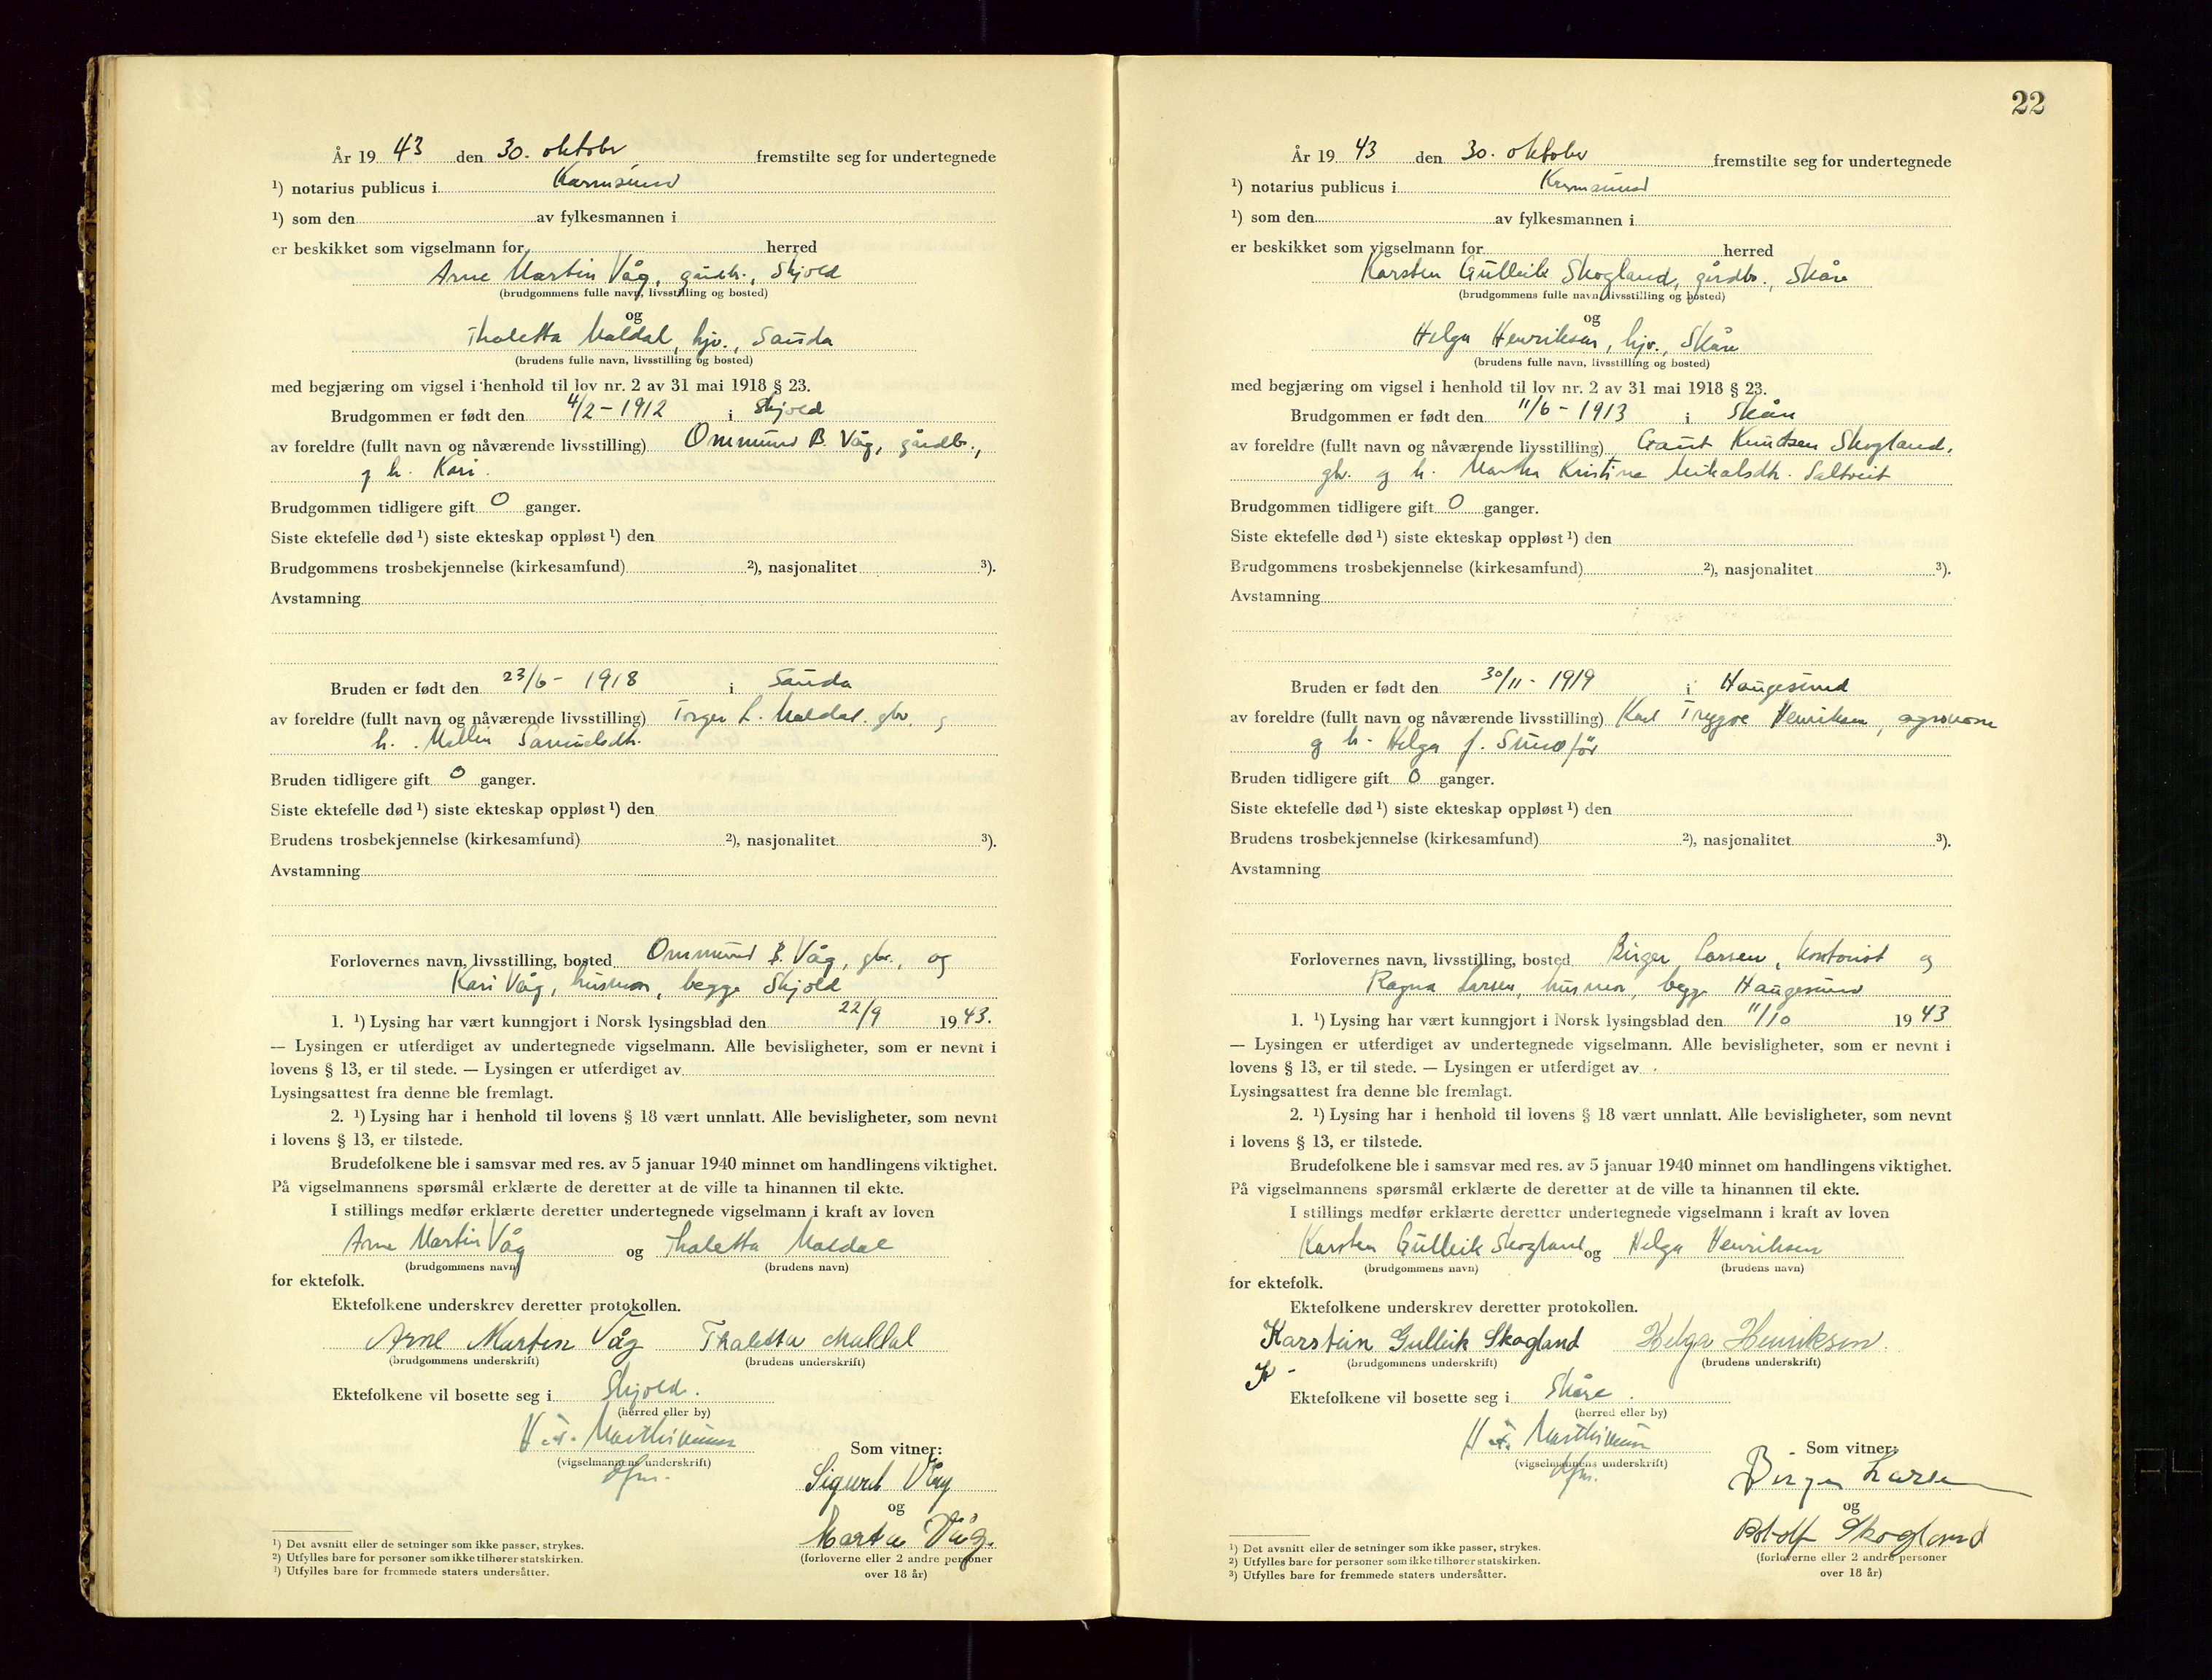 År 19 43 den 30. oktober fremstilte seg for undertegnede
¹) notarius publicus i Karmsund
¹) som den av fylkesmannen i
er beskikket som vigselmann for herred
Arne Martin Våg, gårdbr., Skjold
(brudgommens fulle navn, livsstilling og bosted)
og
Thaletta Maldal, hjv., Sauda
(brudens fulle navn, livsstilling og bosted)
med begjæring om vigsel i henhold til lov nr. 2 av 31 mai 1918 § 23.
Brudgommen er født den 4/2 - 1912 i Skjold
av foreldre (fullt navn og nåværende livsstilling) Ommund B. Våg, gårdbr.,
g h. Kari.
Brudgommen tidligere gift 0 ganger.
Siste ektefelle død ¹) siste ekteskap oppløst ¹) den
Brudgommens trosbekjennelse (kirkesamfund) ²), nasjonalitet ³).
Avstamning
Bruden er født den 23/6 - 1918 i Sauda
av foreldre (fullt navn og nåværende livsstilling) Torger L. Maldal. gbr. g
h. Mallin Samuelsdtr.
Bruden tidligere gift 0 ganger.
Siste ektefelle død ¹) siste ekteskap oppløst ¹) den
Brudens trosbekjennelse (kirkesamfund) ²), nasjonalitet ³).
Avstamning
Forlovernes navn, livsstilling, bosted Ommund B. Våg, gbr., og
Kari Våg, husmor, begge Skjold
1. ¹) Lysing har vært kunngjort i Norsk lysingsblad den 22/9 19 43.
— Lysingen er utferdiget av undertegnede vigselmann. Alle bevisligheter, som er nevnt i
lovens § 13, er til stede. — Lysingen er utferdiget av
Lysingsattest fra denne ble fremlagt.
2. ¹) Lysing har i henhold til lovens § 18 vært unnlatt. Alle bevisligheter, som nevnt
i lovens § 13, er tilstede.
Brudefolkene ble i samsvar med res. av 5 januar 1940 minnet om handlingens viktighet.
På vigselmannens spørsmål erklærte de deretter at de ville ta hinannen til ekte.
I stillings medfør erklærte deretter undertegnede vigselmann i kraft av loven
Arne Martin Våg og Thaletta Maldal
(brudgommens navn) (brudens navn)
for ektefolk.
Ektefolkene underskrev deretter protokollen.
Arne Martin Våg Thaletta Maldal
(brudgommens underskrift) (brudens underskrift)
Ektefolkene vil bosette seg i Skjold.
(herred eller by)
(vigselmannens underskrift)
Som vitner:
Sigurd Våg
og
Marta Våg.
(forloverne eller 2 andre personer
over 18 år)
¹) Det avsnitt eller de setninger som ikke passer, strykes.
²) Utfylles bare for personer som ikke tilhører statskirken.
³) Utfylles bare for fremmede staters undersåtter.
22
År 19 43 den 30. oktober fremstilte seg for undertegnede
¹) notarius publicus i Karmsund
¹) som den av fylkesmannen i
er beskikket som vigselmann for herred
Karsten Gulleik Skogland, gårdbr., Skåre
(brudgommens fulle navn, livsstilling og bosted)
og
Helga Henriksen, hjv., Skåre
(brudens fulle navn, livsstilling og bosted)
med begjæring om vigsel i henhold til lov nr. 2 av 31 mai 1918 § 23.
Brudgommen er født den 11/6 - 1913 i Skåre
av foreldre (fullt navn og nåværende livsstilling) Gaut Knudsen Skogland,
gbr. g h. Martha Kristine Mikalsdtr. Saltveit
Brudgommen tidligere gift 0 ganger.
Siste ektefelle død ¹) siste ekteskap oppløst ¹) den
Brudgommens trosbekjennelse (kirkesamfund) ²), nasjonalitet ³).
Avstamning
Bruden er født den 30/11 - 1919 i Haugesund
av foreldre (fullt navn og nåværende livsstilling) Karl Trygve Henriksen, agronom
g h. Helga f.
Bruden tidligere gift 0 ganger.
Siste ektefelle død ¹) siste ekteskap oppløst ¹) den
Brudens trosbekjennelse (kirkesamfund) ²), nasjonalitet ³).
Avstamning
Forlovernes navn, livsstilling, bosted Birger Larsen, kontorist og
Ragna Larsen, husmor, begge Haugesund
1. ¹) Lysing har vært kunngjort i Norsk lysingsblad den 11/10 19 43
— Lysingen er utferdiget av undertegnede vigselmann. Alle bevisligheter, som er nevnt i
lovens § 13, er til stede. — Lysingen er utferdiget av
Lysingsattest fra denne ble fremlagt.
2. ¹) Lysing har i henhold til lovens § 18 vært unnlatt. Alle bevisligheter, som nevnt
i lovens § 13, er tilstede.
Brudefolkene ble i samsvar med res. av 5 januar 1940 minnet om handlingens viktighet.
På vigselmannens spørsmål erklærte de deretter at de ville ta hinannen til ekte.
I stillings medfør erklærte deretter undertegnede vigselmann i kraft av loven
Karsten Gulleik Skogland og Helga Henriksen
(brudgommens navn) (brudens navn)
for ektefolk.
Ektefolkene underskrev deretter protokollen.
Karstein Gulleik Skogland Helga Henriksen.
(brudgommens underskrift) (brudens underskrift)
Ektefolkene vil bosette seg i Skåre.
(herred eller by)
(vigselmannens underskrift)
Som vitner:
Birger Larsen
og
Skogland
(forloverne eller 2 andre personer
over 18 år)
¹) Det avsnitt eller de setninger som ikke passer, strykes.
²) Utfylles bare for personer som ikke tilhører statskirken.
³) Utfylles bare for fremmede staters undersåtter.